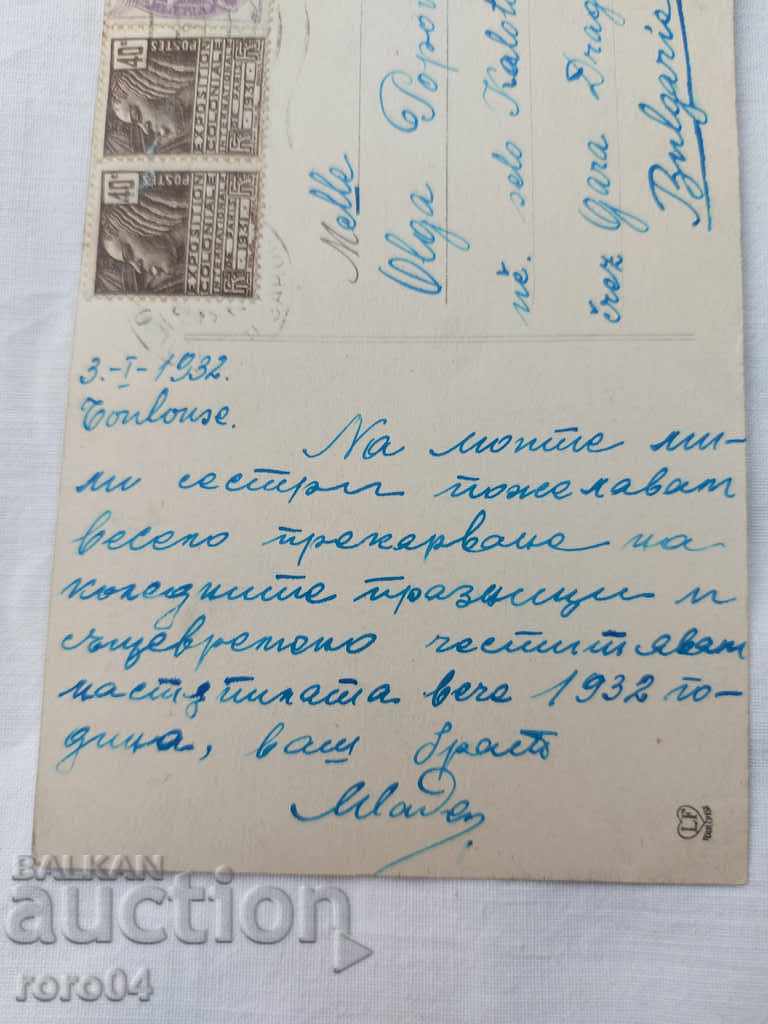 40c
POSTES
EXPOSITION
COLONIALE
INTERNATIONALE
DE PARIS
1931
40c
POSTES
EXPOSITION
COLONIALE
INTERNATIONALE
DE PARIS
1931
Melle
Olga Popov
selo Kalot
črez Gara Drag
Bulgarie
3.-I-1932.
Toulouse.
На моите ми-
ли сестри пожелавам
весело прекарване на
коледните празници и
същевремено честитявам
настѫпилата вече 1932 го-
дина, ваш братъ
Младен
LF
BALKAN
auction
roro04